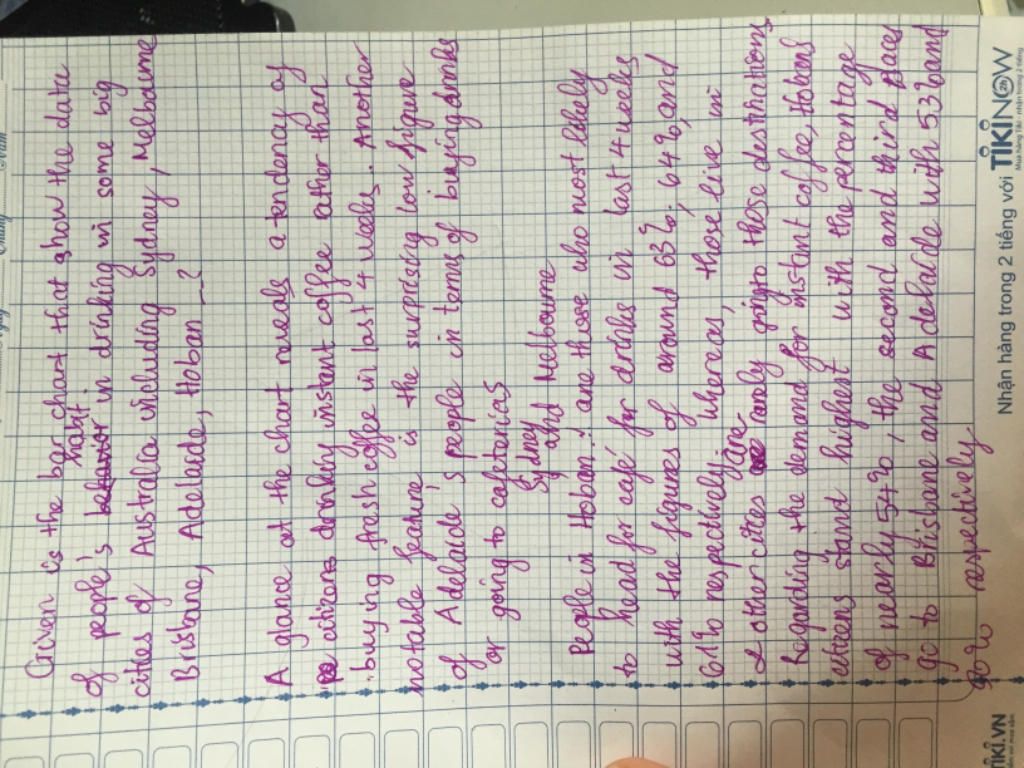 Given is the bar chart that show the data
of people's habit in drinking in some big
cities of Australia including Sydney, Melbaume
Brisbane, Adelaide, Hoban ...?
A glance at the chart reveals a tendency of
citizens drinking instant coffee rather than
buying fresh coffee in last 4 weeks. Another
notable feature is the surprising low figure
of Adelaide's people in terms of buying drinks
or going to cafeterias
Sydney
People in Hoban, and Melbourne are those who most likely
to head for café for drinks in last 4 weeks
with the figures of around 63%, 64%, and
61% respectively. Whereas, those live in
2 other cities are rarely going to those destinations
Regarding the demand for instant coffee, Hoban
citizens stand highest with the percentage
of nearly 54%, the second and third places
go to Brisbane and Adelaide with 53% and
50% respectively
Nhận hàng trong 2 tiếng với TIKINOW
2h
Mua hàng Tiki - nhận trong 2 tiếng
TIKI.VN